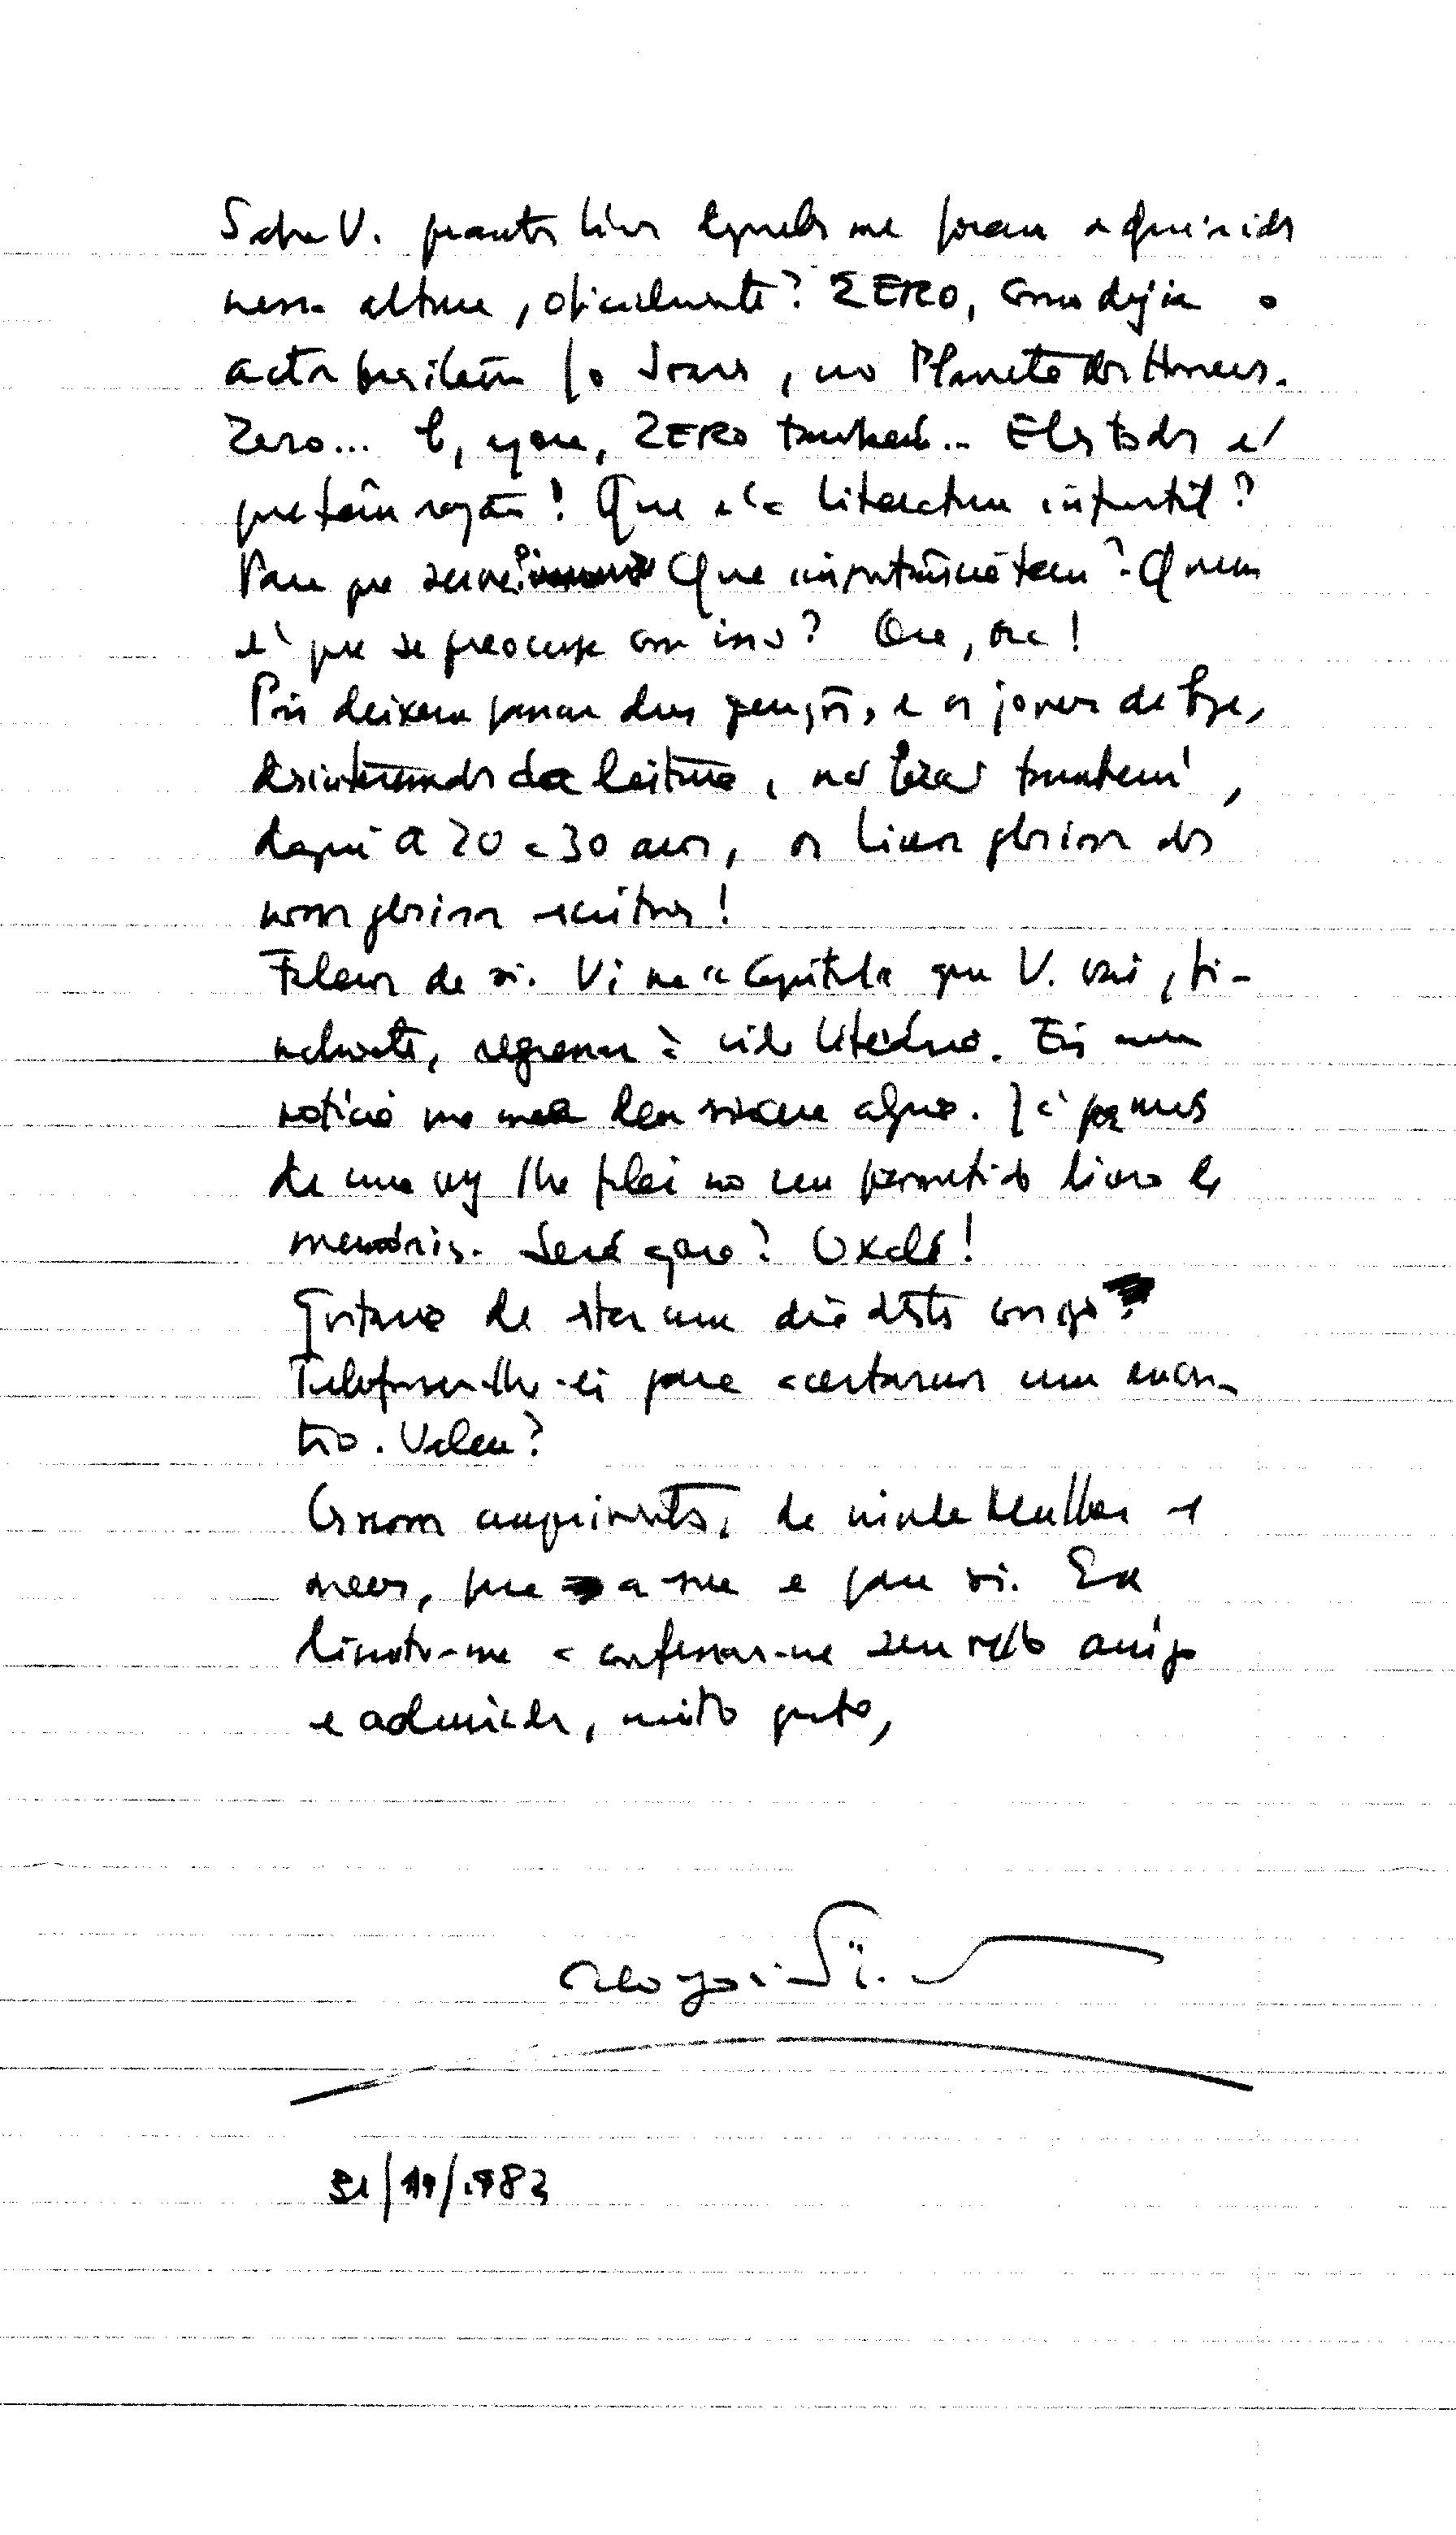 Sabe V. quantos livros daqueles me foram adquiridos
nessa altura, oficialmente? ZERO, como dizia o
actor brasileiro Jô Soares, no Planeta dos Homens.
Zero... E, agora, ZERO também... Eles todos é
que têm razão! Que é a literatura infantil?
Para que serve? Que importância tem? Quem
é que se preocupa com isso? Ora, ora!
Pois deixem passar duas gerações, e os jovens de hoje,
desinteressados da leitura, não lerão também,
daqui a 20 a 30 anos, os livros gloriosos dos
nossos gloriosos escritores!
Falemos de si. Vi na "Capital" que V. vai, fi-
nalmente, regressar à vida literária. Eis uma
notícia que me deu sincera alegria. Já por mais
de uma vez lhe falei no seu prometido livro de
memórias. Será agora? Oxalá!
Gostaria de estar um dia destes consigo.
Telefonar-lhe-ei para acertarmos um encon-
tro. Valeu?
Os nossos cumprimentos, de minha Mulher e
meus, para a sua e para si. Eu
limito-me a confessar-me seu velho amigo
e admirador, muito grato,
31/ /1982